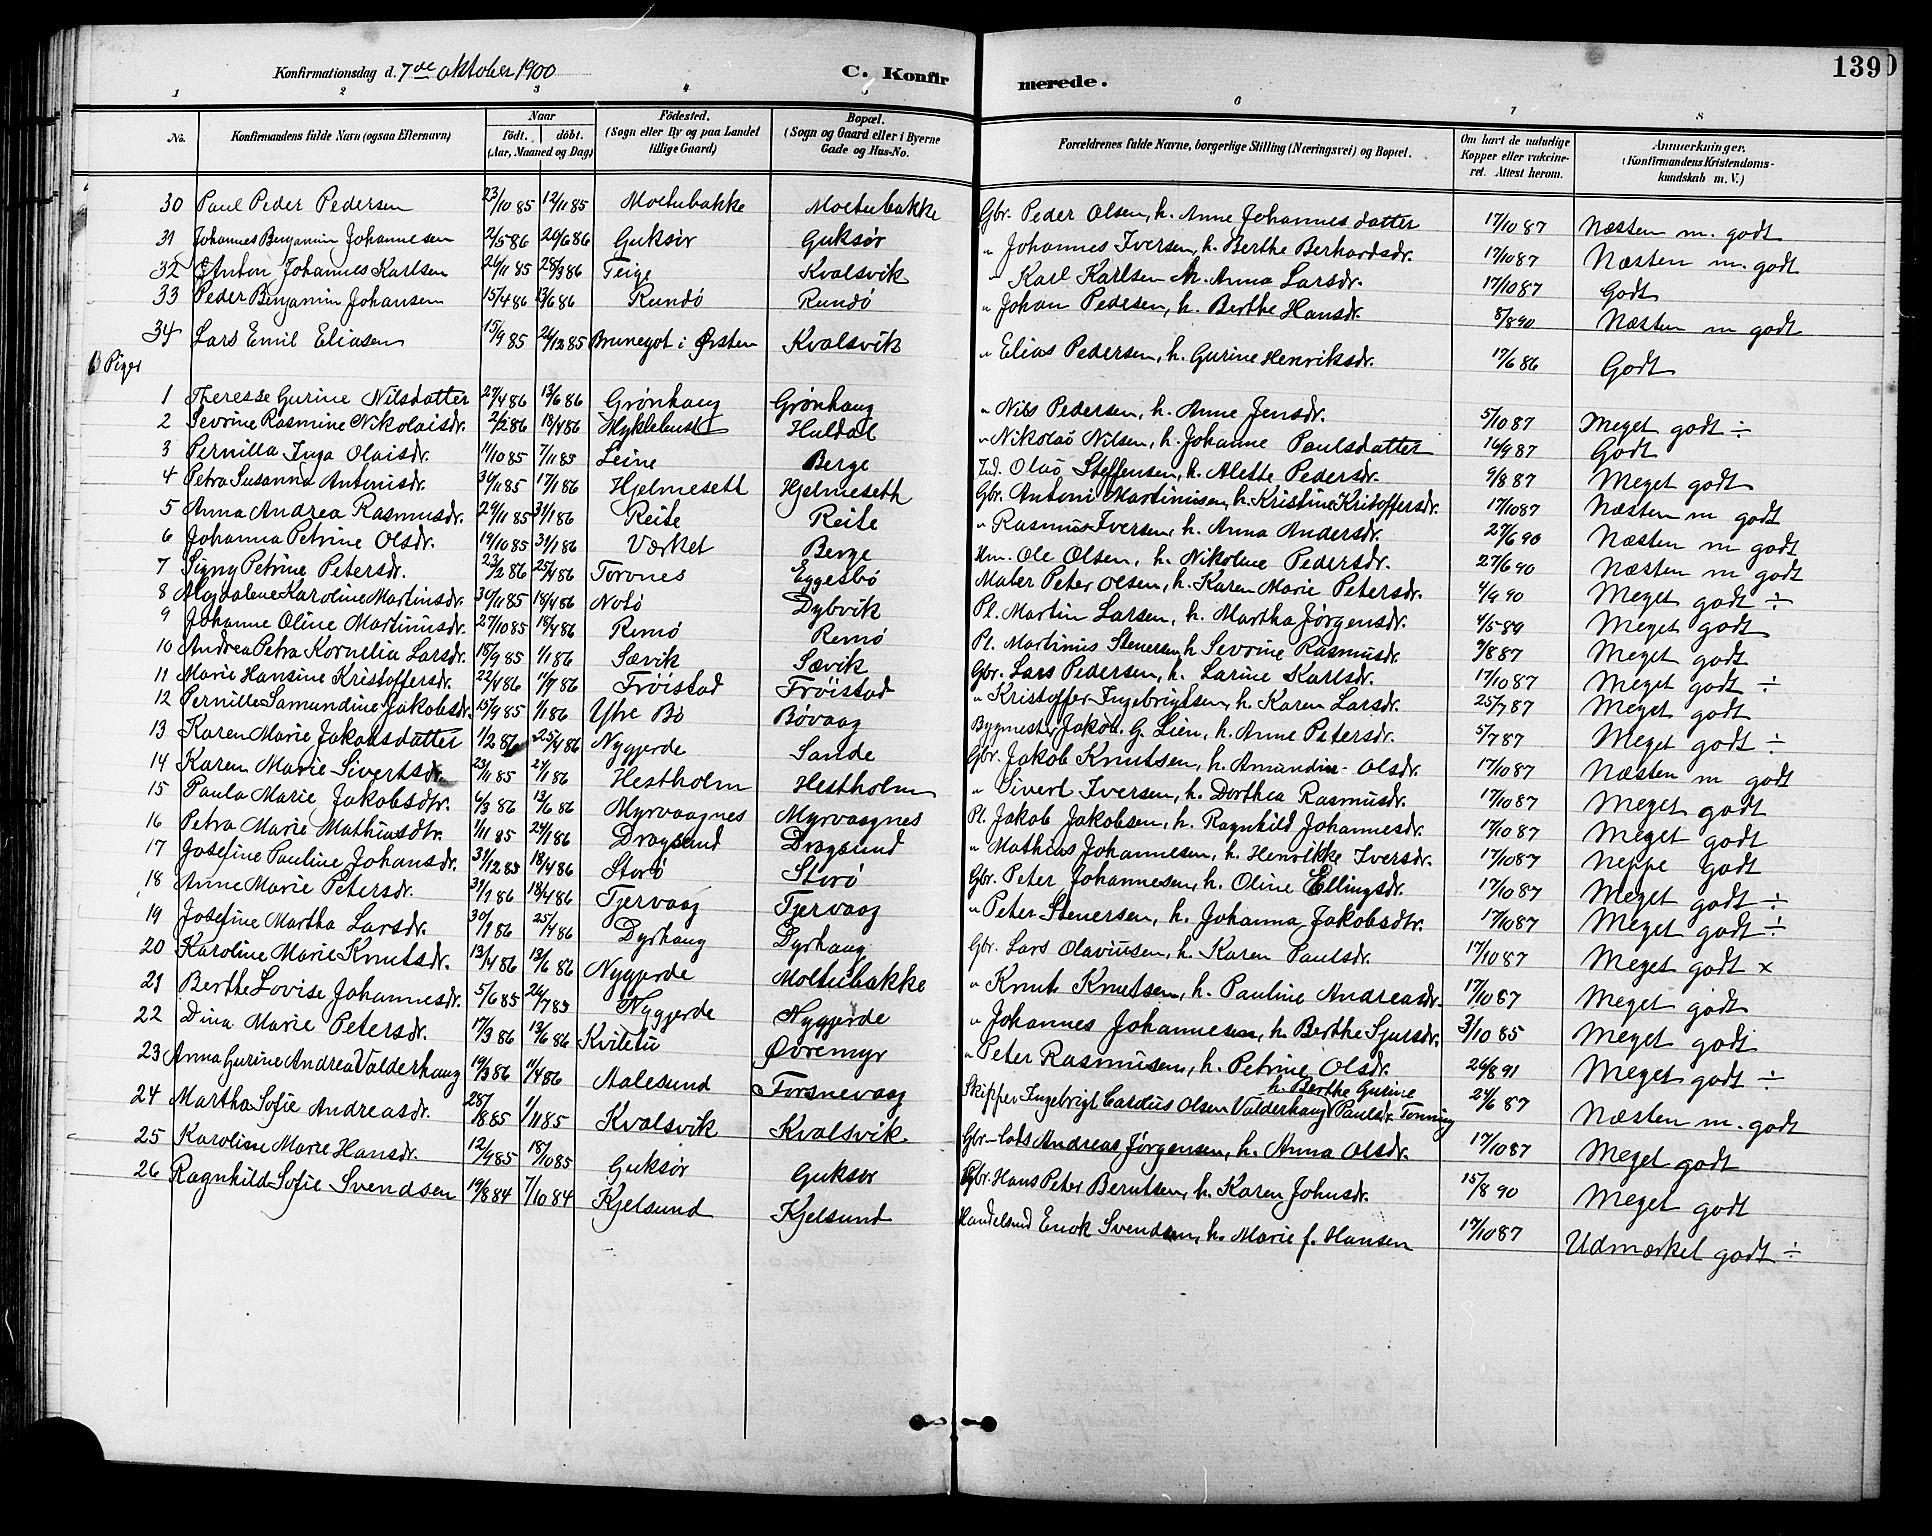 Konfirmationsdag d. 7de oktober 1900 C. Konfirmerede. 139
1 2 3 4 5 6 7 8
No. Konfirmandens fulde Navn (ogsaa Efternavn) Naar födt. döbt. (Aar, Maaned og Dag) Födested. (Sogn eller By og paa Landet tillige Gaard) Bopæl. (Sogn og Gaard eller i Byerne Gade og Hus-No. Forældrenes fulde Navne, borgerlige Stilling (Næringsvei) og Bopæl. Om havt de naturlige Kopper eller vakcineret. Attest herom. Anmerkninger. (Konfirmandens Kristendomskundskab m. V.)
30 Paul Peder Pedersen 23/10 85 12/11 85 Moltubakke Moltubakke Gbr. Peder Olsen, h. Anne Johannesdatter 17/10 87 Næsten m. godt
31 Johannes Benjamin Johannesen 2/5 86 20/6 86 Guksør Guksør " Johannes Iversen, h. Berthe Berhardsdr. 17/10 87 Næsten m. godt
32 Anton Johannes Karlsen 26/11 85 28/3 86 Teige Kvalsvik " Karl Karlsen h. Anna Larsdr. 17/10 87 Godt
33 Peder Benjamin Johansen 15/4 86 13/6 86 Rundö Rundö " Johan Pedersen, h. Berthe Hansdr. 8/8 90 Næsten m godt
34 Lars Emil Eliasen 15/9 85 26/12 85 Brunegot i Ørsten Kvalsvik " Elias Pedersen, h. Gurine Henriksdr. 17/6 86 Godt
B Piger
1 Therese Gurine Nilsdatter 27/4 86 13/6 86 Grønhaug Grønhaug " Nils Pedersen, h. Anne Jensdr. 5/10 87 Meget godt ÷
2 Sevrine Rasmine Nikolaisdr. 2/2 86 18/4 86 Myklebust Huldal " Nikolai Nilsen, h. Johanne Paulsdatter 16/9 87 Godt
3 Pernilla Inga Olaisdr. 11/10 85 7/11 85 Leine Berge Ind. Olai Steffensen, h. Alette Pedersdr. 9/8 87 Meget godt
4 Petra Susanna Antonisdr. 30/11 85 17/1 86 Hjelmesett Hjelmeseth Gbr. Antoni Martinusen, h. Kristine Kristoffersdr. 17/10 87 Næsten m godt
5 Anna Andrea Rasmusdr. 29/11 85 31/1 86 Reite Reite " Rasmus Iversen, h. Anna Andersdr. 27/6 90 Næsten m godt
6 Johanna Petrine Olsdr. 19/10 85 31/1 86 Værket Berge Hm. Ole Olsen, h. Nikoline Pedersdr. 27/6 90 Næsten m godt
7 Signy Petrine Petersdr. 23/2 86 25/4 86 Torvnes Eggesbö Maler Peter Olsen, h. Karen Marie Petersdr. 4/9 90 Meget godt ÷
8 Magdalene Karoline Martinsdr. 30/11 85 18/4 86 Notö Dybvik Pl. Martin Larsen, h. Martha Jørgensdr. 4/5 89 Meget godt
9 Johanne Oline Martinusdr. 27/10 85 18/4 86 Remö Remö Pl. Martinus Stenersen, h Sevrine Rasmusdr. 9/8 87 Meget godt
10 Andrea Petra Kornelia Larsdr. 18/9 85 1/1 86 Sævik Sævik Gbr. Lars Pedersen, h. Larine Karlsdr. 17/10 87 Meget godt ÷
11 Marie Hansine Kristoffersdr. 22/4 86 11/7 86 Fröistad Fröistad " Kristoffer Ingebrigtsen, h. Karen Larsdr. 25/7 87 Meget godt
12 Pernille Samundine Jakobsdr. 15/9 85 1/1 86 Ytre Bö Bövaag Bygmester Jakob. G. Lien, h. Anne Petersdr. 5/7 87 Meget godt ÷
13 Karen Marie Jakobsdatter 1/2 86 25/4 86 Nygjerde Sande Gbr. Jakob Knutsen, h. Amundine Olsdr. 17/10 87 Næsten m godt
14 Karen Marie Sivertsdr. 23/11 85 21/1 86 Hestholm Hestholm " Sivert Iversen, h. Dorthea Rasmusdr. 17/10 87 Meget godt
15 Paula Marie Jakobsdtr. 6/3 86 13/6 86 Myrvaagnes Myrvaagnes Pl. Jakob Jakobsen, h. Ragnhild Johannesdr. 17/10 87 Meget godt
16 Petra Marie Mathiasdtr. 1/11 85 24/1 86 Dragsund Dragsund " Mathias Johannesen, h. Henrikke Iversdr. 17/10 87 Neppe godt
17 Josefine Pauline Johansdr. 31/12 85 18/4 86 Storö Storö Gbr. Peter Johannesen, h. Oline Ellingsdr. 17/10 87 Meget godt ÷
18 Anne Marie Petersdr. 31/1 86 18/4 86 Tjervaag Tjervaag " Peter Stenersen, h. Johanna Jakobsdtr. 17/10 87 Meget godt ÷
19 Josefine Martha Larsdr. 30/1 86 25/4 86 Dyrhaug Dyrhaug Gbr. Lars Olaviusen, h. Karen Paulsdr. 17/10 87 Meget godt x
20 Karoline Marie Knutsdr. 13/4 86 13/6 86 Nygjerde Moltubakke " Knut Knutsen, h. Pauline Andreasdr. 17/10 87 Meget godt
21 Berthe Lovise Johannesdr. 5/6 85 26/7 85 Nygjerde Nygjerde " Johannes Johannesen, h. Berthe Sjursdr. 3/10 85 Meget godt
22 Dina Marie Petersdr. 17/3 86 13/6 86 Kvitetu Øvremyr " Peter Rasmusen, h. Petrine Olsdr. 26/8 91 Meget godt ÷
23 Anna Gurine Andrea Valderhaug 19/3 86 11/4 86 Aalesund Torsnevaag Skipper Ingebrigt Cardus Olsen Valderhaug h. Berthe Gurine Paulsdr. Tonning 24/6 87 Næsten m. godt
24 Martha Sofie Andreasdr. 28/8 85 1/11 85 Kvalsvik Kvalsvik. Gbr-Lods Andreas Jørgensen, h. Anna Olsdr. 17/10 87 Meget godt
25 Karoline Marie Hansdr. 12/9 85 18/10 85 Guksør Guksør Gbr. Hans Peter Berntsen, h. Karen Johnsdr. 15/8 90 Meget godt
26 Ragnhild Sofie Svendsen 19/8 84 7/10 84 Kjelsund Kjelsund Handelsmd Enok Svendsen, h. Marie f. Hansen 17/10 87 Udmærket godt ÷